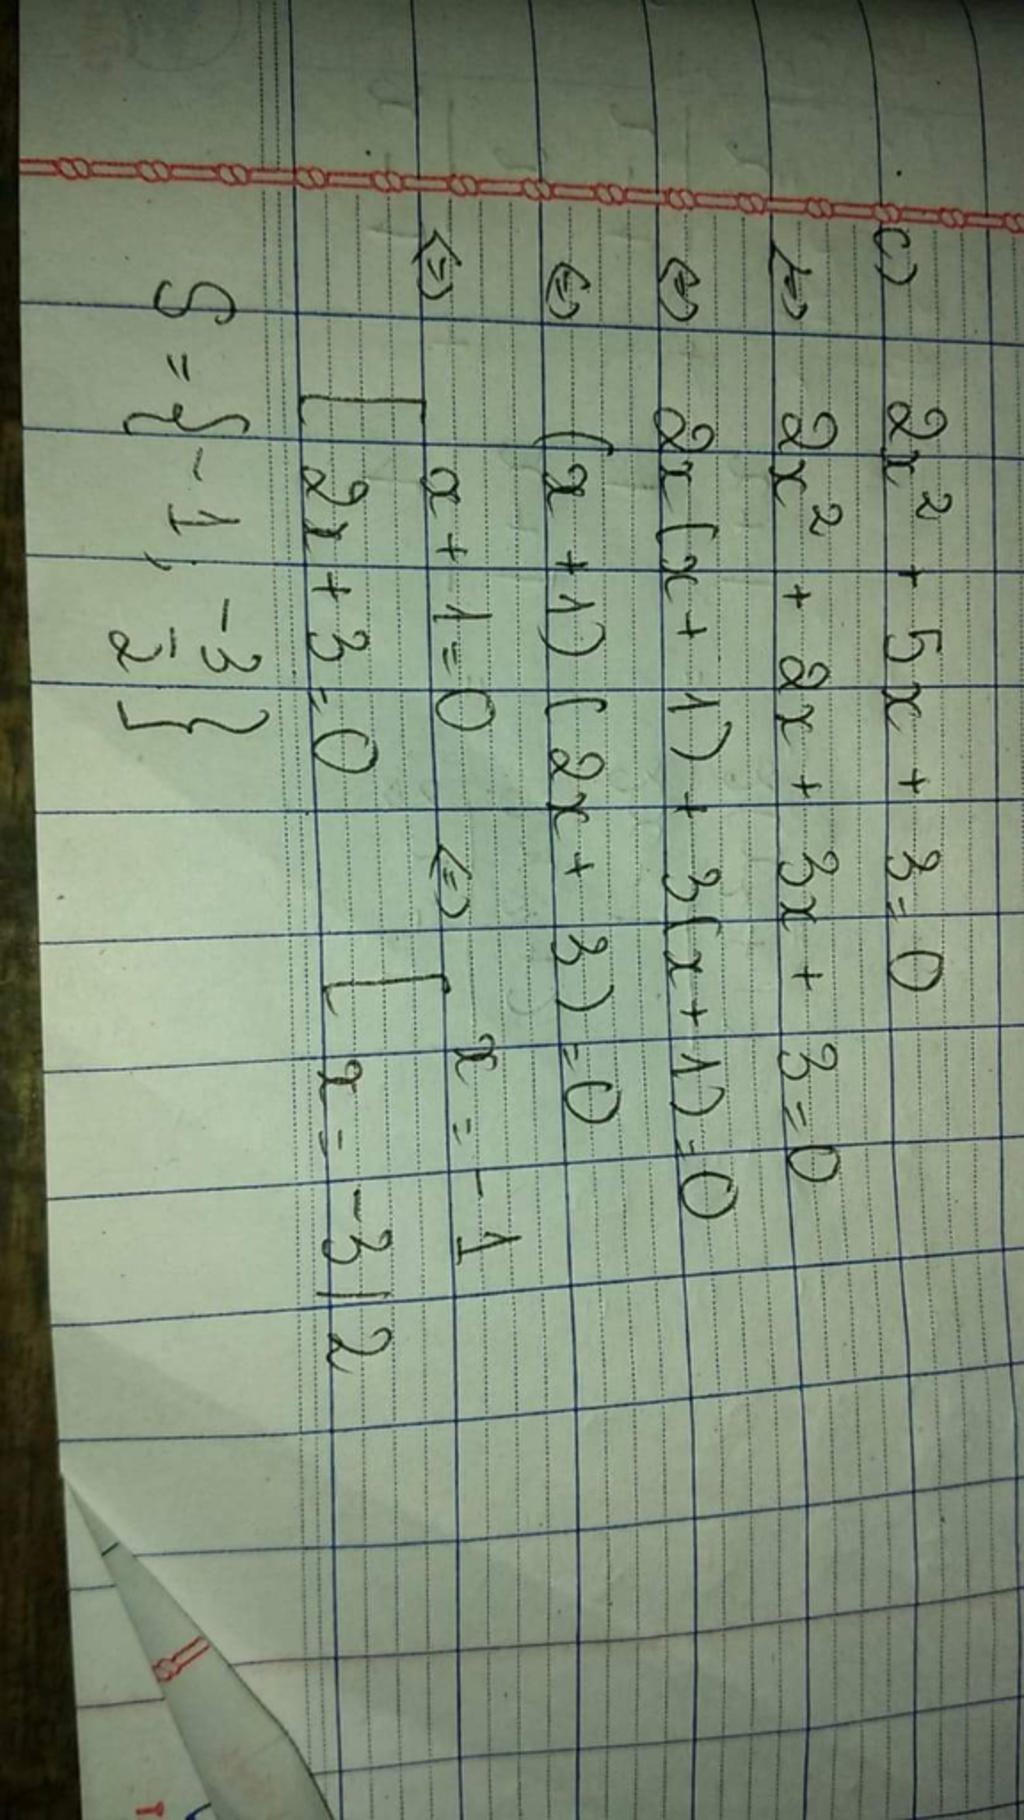 c) 2x² + 5x + 3 = 0
<=> 2x² + 2x + 3x + 3 = 0
<=> 2x(x + 1) + 3(x + 1) = 0
<=> (x + 1)(2x + 3) = 0
<=> [ x + 1 = 0 <=> [ x = -1
2x + 3 = 0 x = -3/2
S = {-1, -3/2}